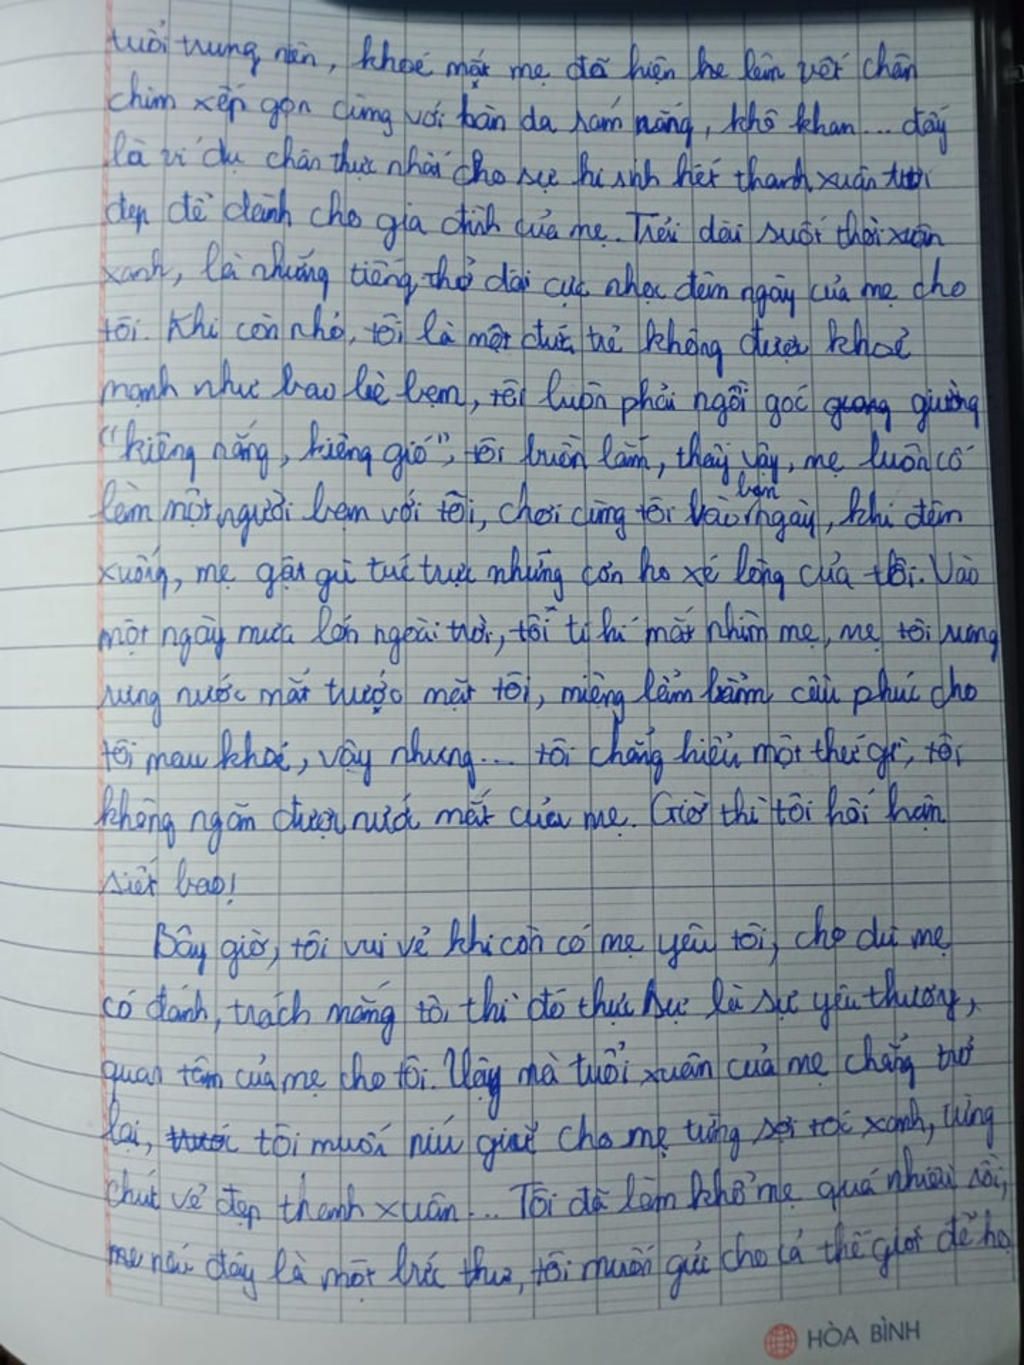 tuổi trung niên, khoé mắt mẹ đã hiện he lên vết chân
chim xếp gọn cùng với bàn da rám nắng, khô khan... đây
là ví dụ chân thực nhất cho sự hi sinh hết thanh xuân tươi
đẹp để dành cho gia đình của mẹ. Trải dài suốt thời xuân
xanh, là những tiếng thở dài cực nhọc đêm ngày của mẹ cho
tôi. Khi còn nhỏ, tôi là một đứa trẻ không được khoẻ
mạnh như bao bè bạn, tôi luôn phải ngồi góc giường
"kiêng nắng, kiêng gió", tôi buồn lắm, thấy vậy, mẹ luôn cố
làm một người bạn với tôi, chơi cùng tôi vào ban ngày, khi đêm
xuống, mẹ gần gũi túc trực những cơn ho xé lòng của tôi. Vào
một ngày mưa lớn ngoài trời, tôi ti hí mắt nhìn mẹ, mẹ tôi rưng
rưng nước mắt trược mặt tôi, miệng lẩm bẩm cầu phúc cho
tôi mau khoẻ, vậy nhưng... tôi chẳng hiểu một thứ gì, tôi
không ngăn được nước mắt của mẹ. Giờ thì tôi hối hận
siết bao!
Bây giờ, tôi vui vẻ khi còn có mẹ yêu tôi, cho dù mẹ
có đánh, trách mắng tôi thì đó thực sự là sự yêu thương,
quan tâm của mẹ cho tôi. Vậy mà tuổi xuân của mẹ chẳng trở
lại, tôi muốn níu giữ cho mẹ từng sợi tóc xanh, từng
chút vẻ đẹp thanh xuân... Tôi đã làm khổ mẹ quá nhiều rồi,
nếu đây là một bức thư, tôi muốn gửi cho cả thế giới để họ
HÒA BÌNH